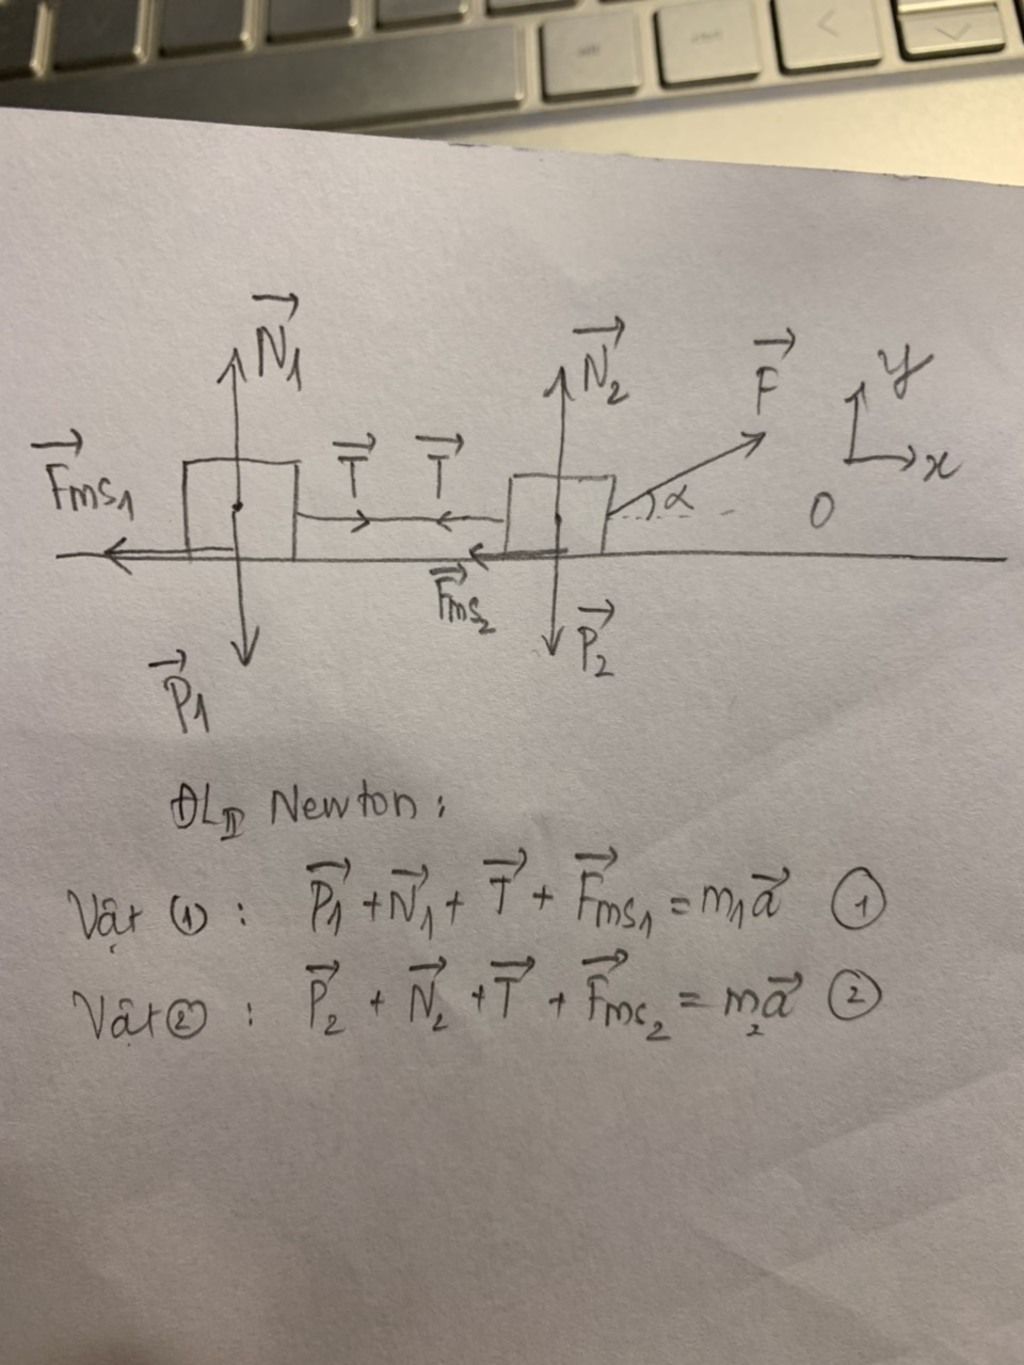 N⃗1
N⃗2
F⃗
y
F⃗ms1
T⃗ T⃗
α
x
O
F⃗ms2
P⃗1
P⃗2
ĐLII Newton:
Vật (1) : P⃗1 + N⃗1 + T⃗ + F⃗ms1 = m1a⃗ ①
Vật ② : P⃗2 + N⃗2 + T⃗ + F⃗ms2 = m2a⃗ ②